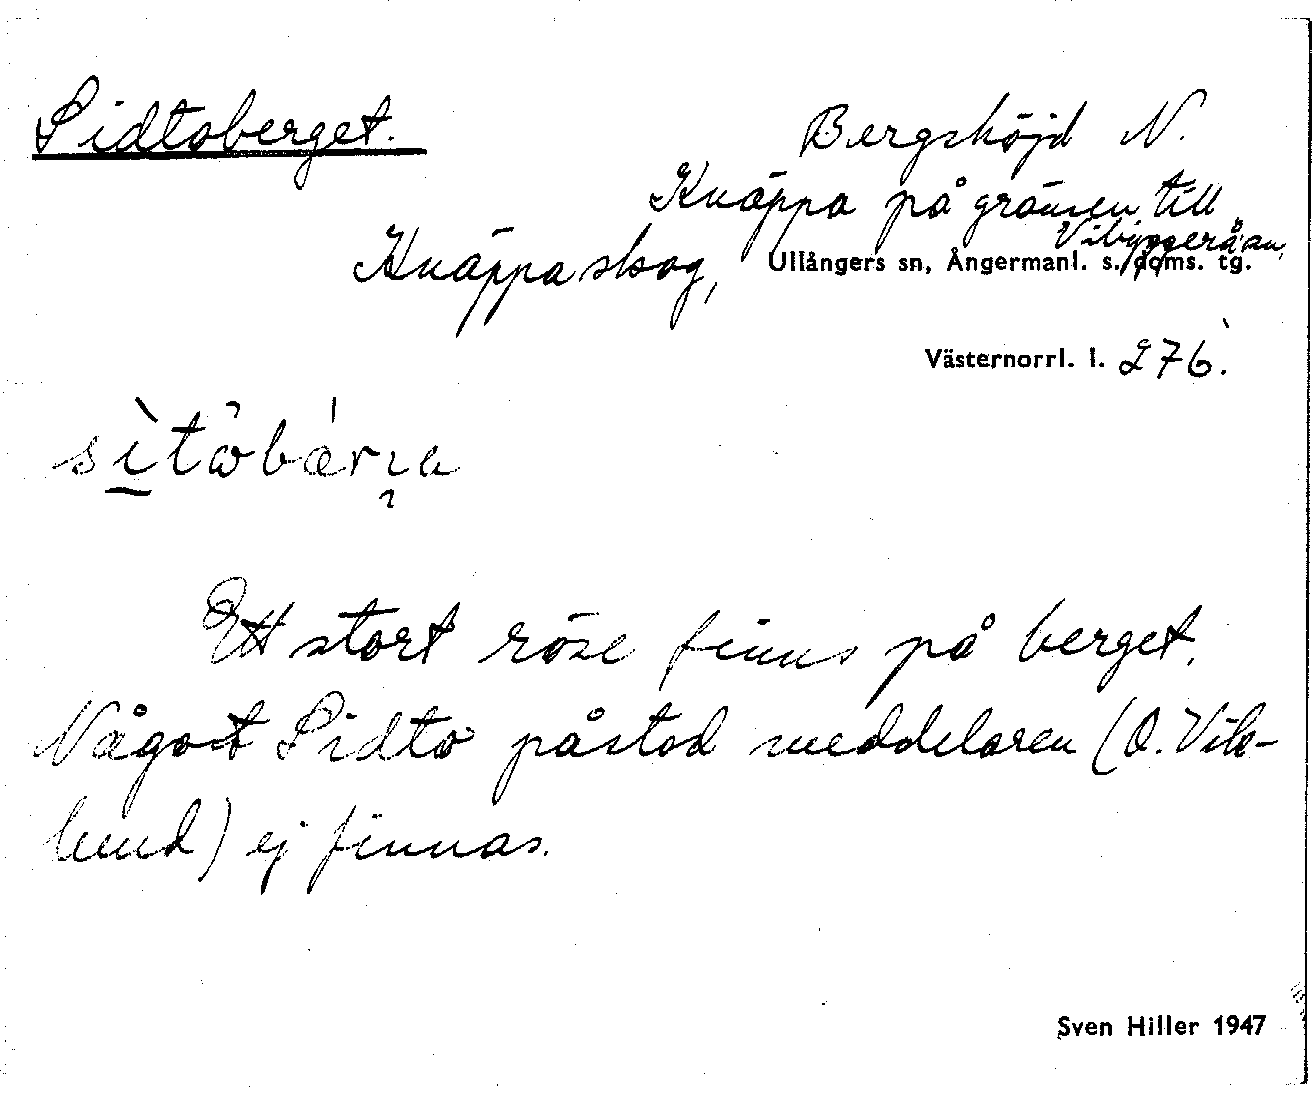 Sidtoberget.
Bergshöjd N.
Knäppa på gränsen till
Vibyggeråsn,
Knäppaskog, Ullångers sn, Ångermanl. s. doms. tg.
Västernorrl. l. 276.
Ett stort röse finns på berget.
Något Sidto påstod meddelaren (O. Vik-
lund) ej finnas.
Sven Hiller 1947